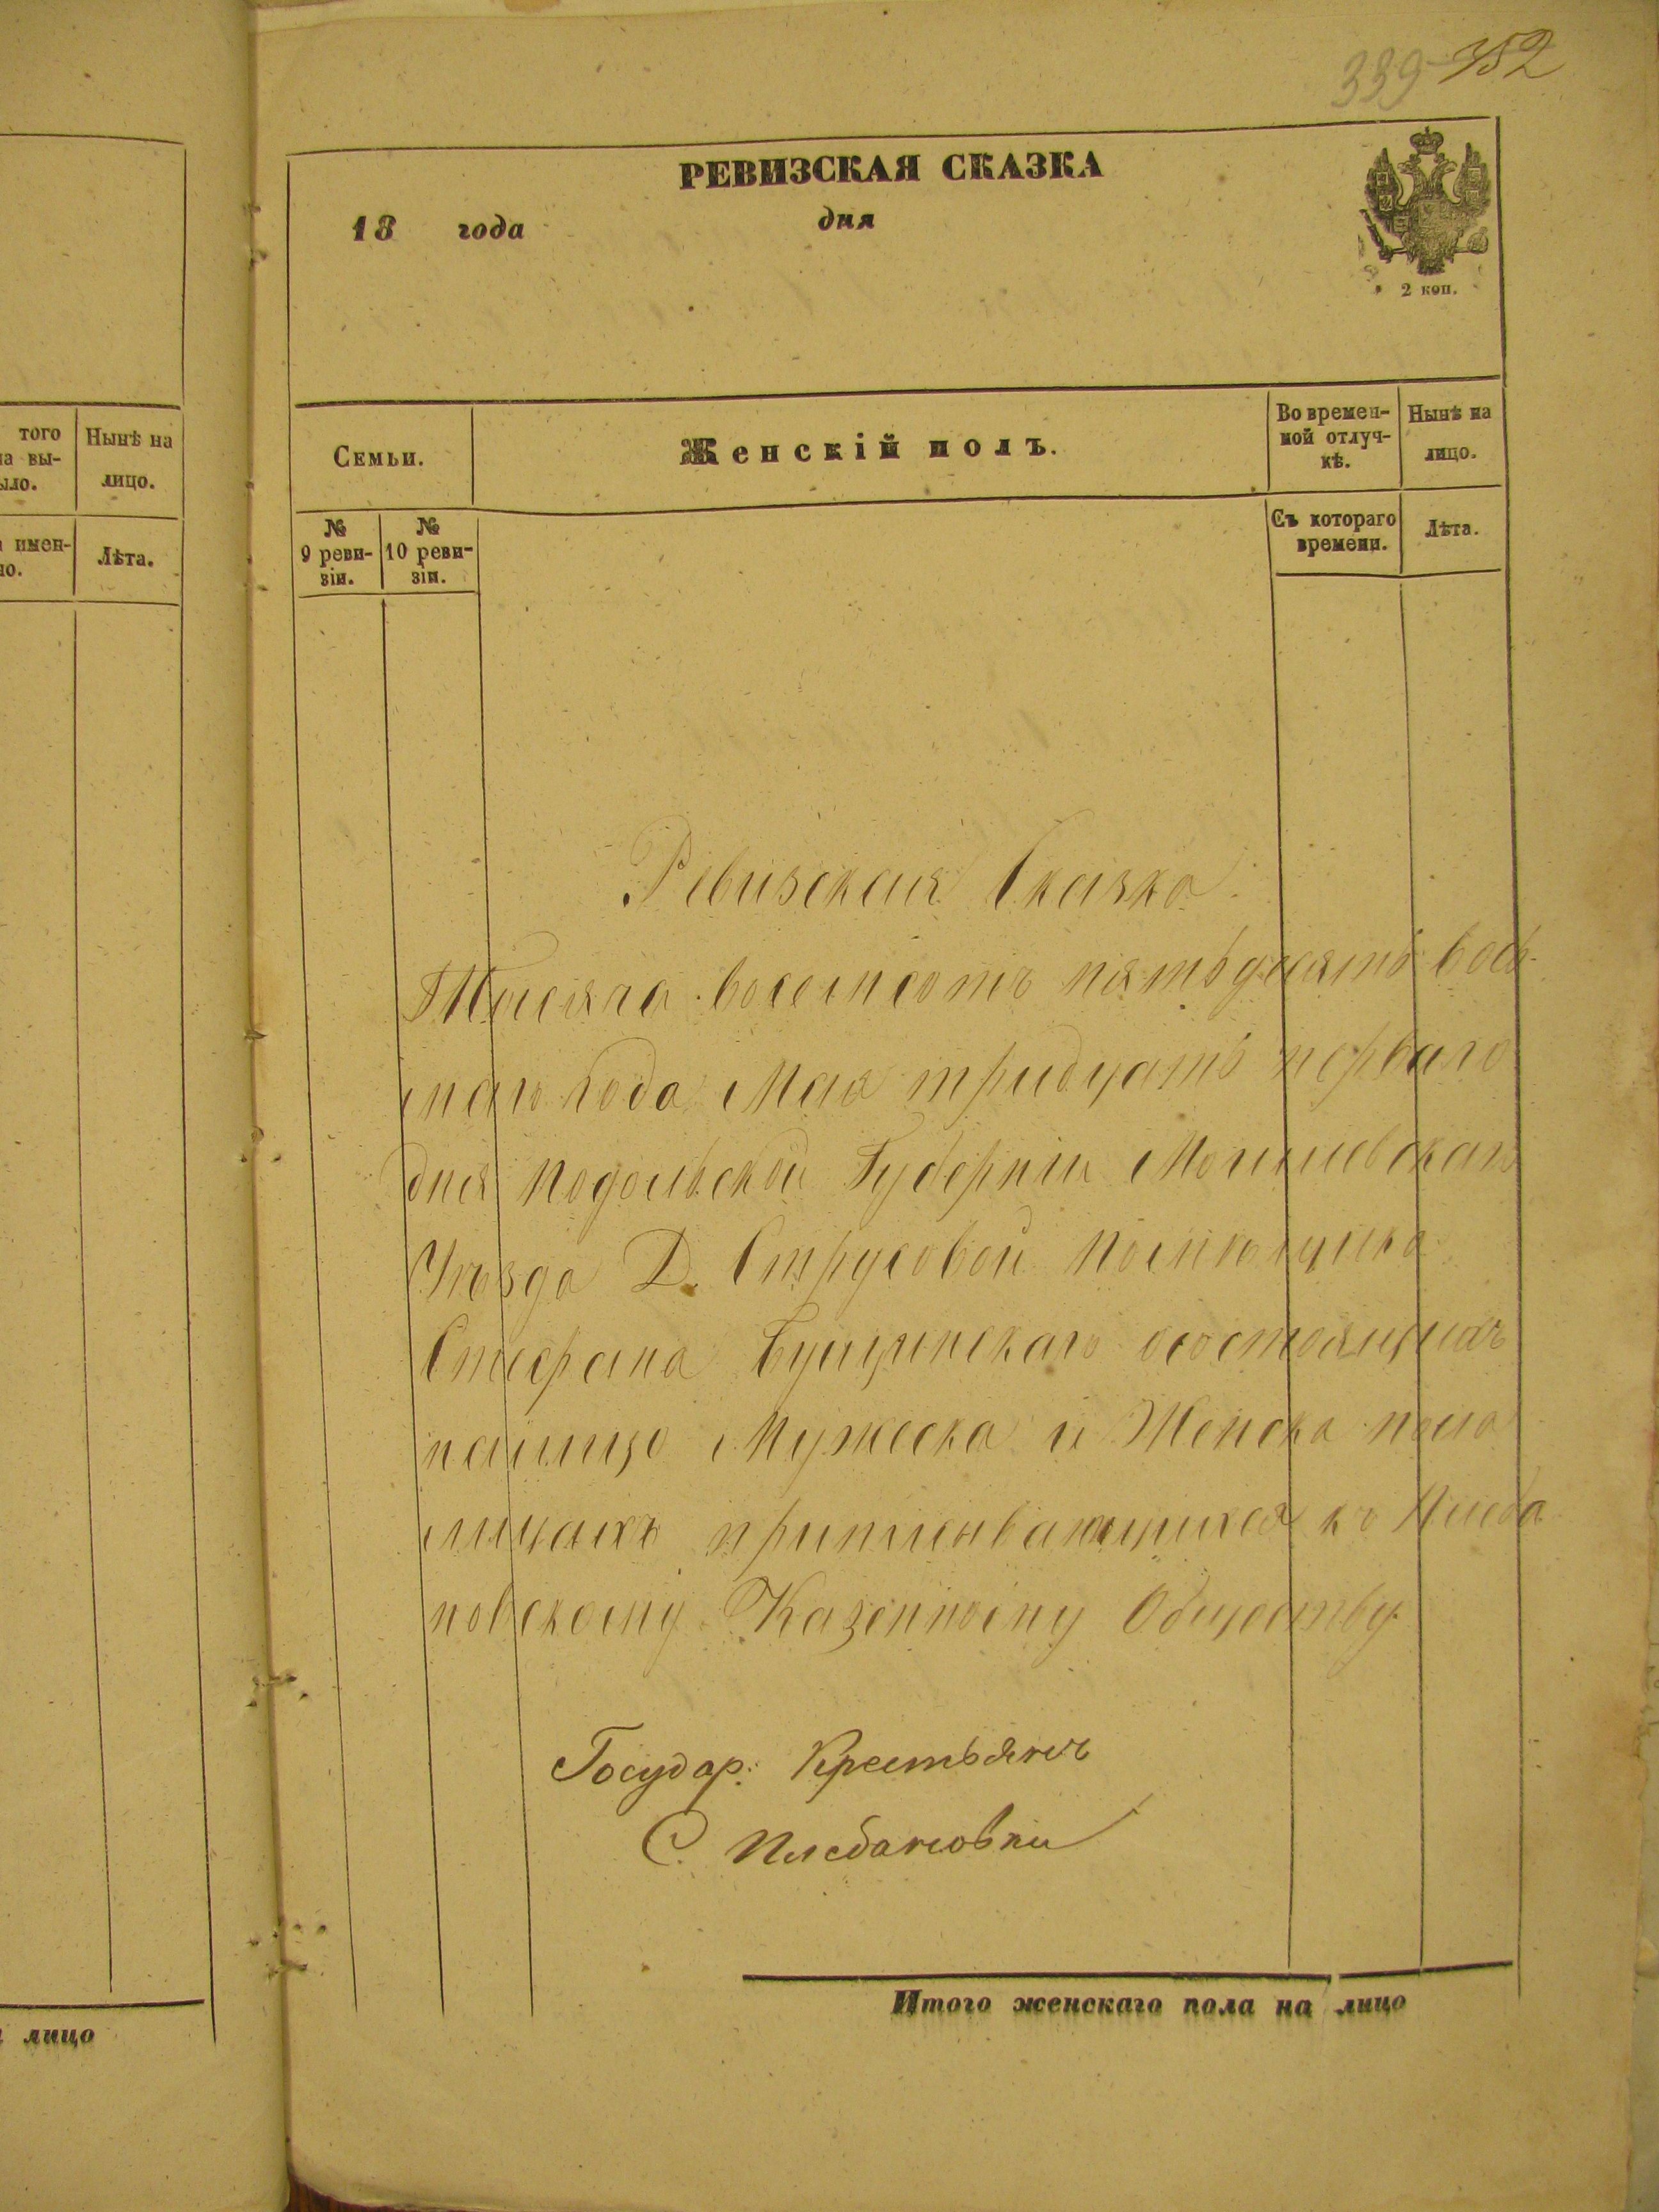 339 352
РЕВИЗСКАЯ СКАЗКА
18 года дня
2 коп.
того
на вы-
ыло.
Нынѣ на
лицо.
а имен-
но.
Лѣта.
Семьи.
Женскій полъ.
Во времен-
ной отлуч-
кѣ.
Нынѣ на
лицо.
№
9 реви-
зіи.
№
10 реви-
зіи.
Съ котораго
времени.
Лѣта.
Ревизская Сказка
Тысяча восемсотъ пятьдесятъ вось-
маго года Мая тридцать перваго
дня Подольской Губерніи Могилевскаго
Уѣзда Д. Струсовой помѣщика
Стефана Бущинскаго состоящихъ
налицо Мужеска и Женска пола
лицахъ къ Плеба
новскому Казенному Обществу
Государ: Крестьянъ
С. Плебановки
Итого женскаго пола на лицо
лицо